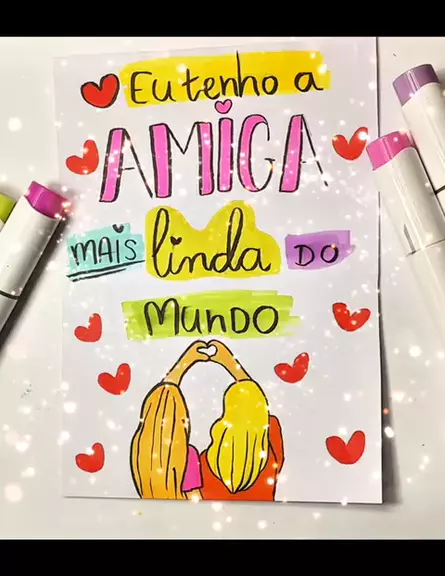 Eu tenho a
AMIGA
MAIS linda DO
MUNDO